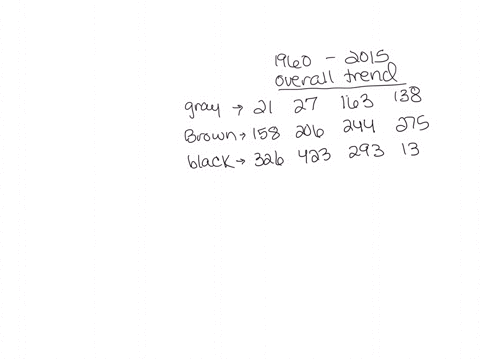 1960 - 2015
overall trend
gray → 21 27 163 138
Brown → 158 206 244 275
black → 326 423 293 13